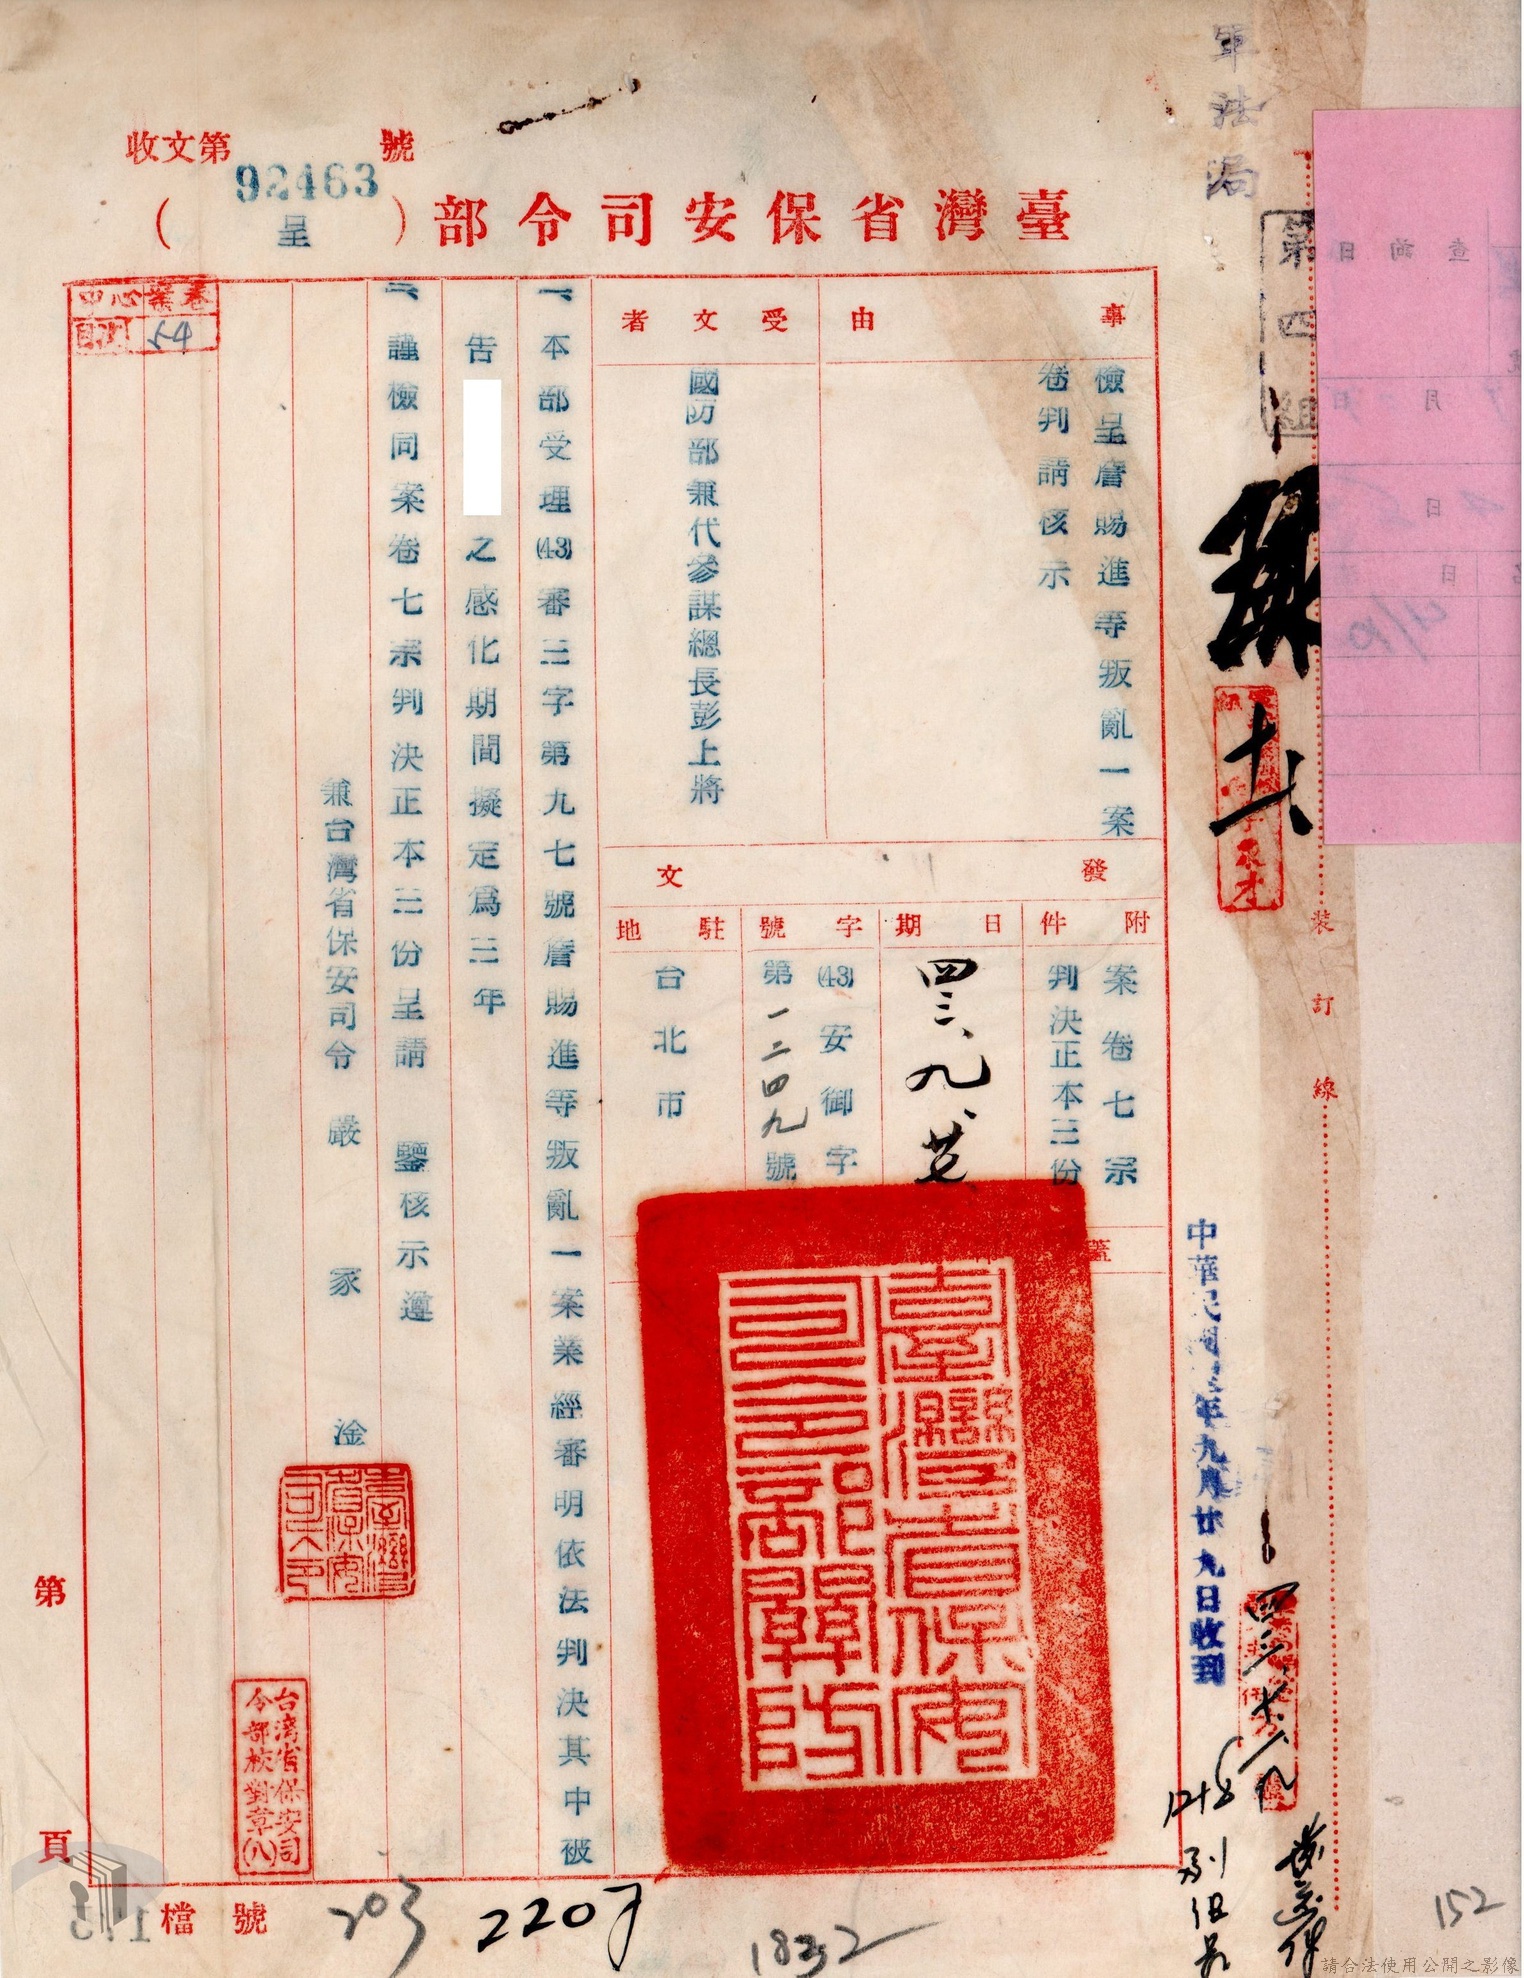 收文第92463號
臺灣省保安司令部(呈)
軍法局
第四組
事由
檢呈詹賜進等叛亂一案
卷判請核示
受文者
國防部兼代參謀總長彭上將
發文
附件
案卷七宗
判決正本三份
日期
四三、九、廿七
字號
(43)安御字
第一二四九號
駐地
台北市
臺灣省保安司令部關防
一、本部受理(43)審三字第九七號詹賜進等叛亂一案業經審明依法判決其中被
告
之感化期間擬定為三年
二、謹檢同案卷七宗判決正本三份呈請 鑒核示遵
兼台灣省保安司令 嚴家淦
台灣省保安司
令部校對章(八)
中心業卷
目次 54
中華民國四三年九月廿九日收到
裝訂線
第
頁
檔號
203
2207
1832
152
查詢日
月
日
請合法使用公開之影像